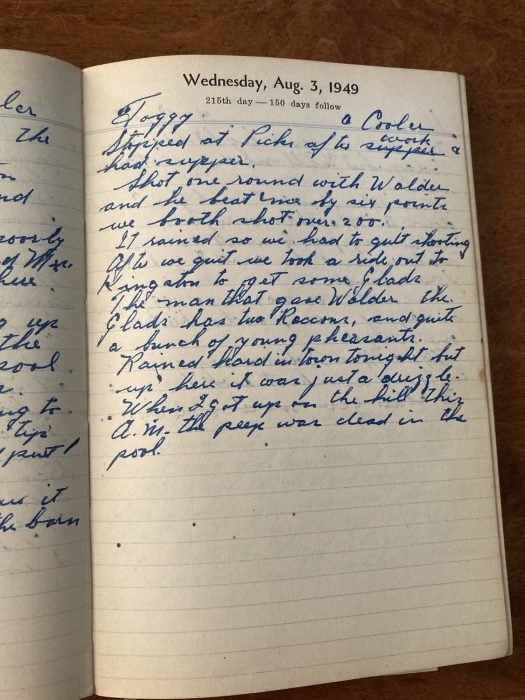 ler
the
nd
poorly
here.
up
the
pool
ng to
tip
it
the barn
Wednesday, Aug. 3, 1949
215th day — 150 days follow
Foggy. & Cooler
Stopped at Picks after supper work &
had supper.
Shot one round with Walder
and he beat me by six points
we booth shot over 200.
It rained so we had to quit shooting
After we quit we took a ride out to
Kingston to get some Glads
The man that gave Walder the
Glads has two Raccons, and quite
a bunch of young pheasants.
Rained hard in town tonight but
up here it was just a drizzle.
When I got up on the hill this
A.M. the peep was dead in the
pool.